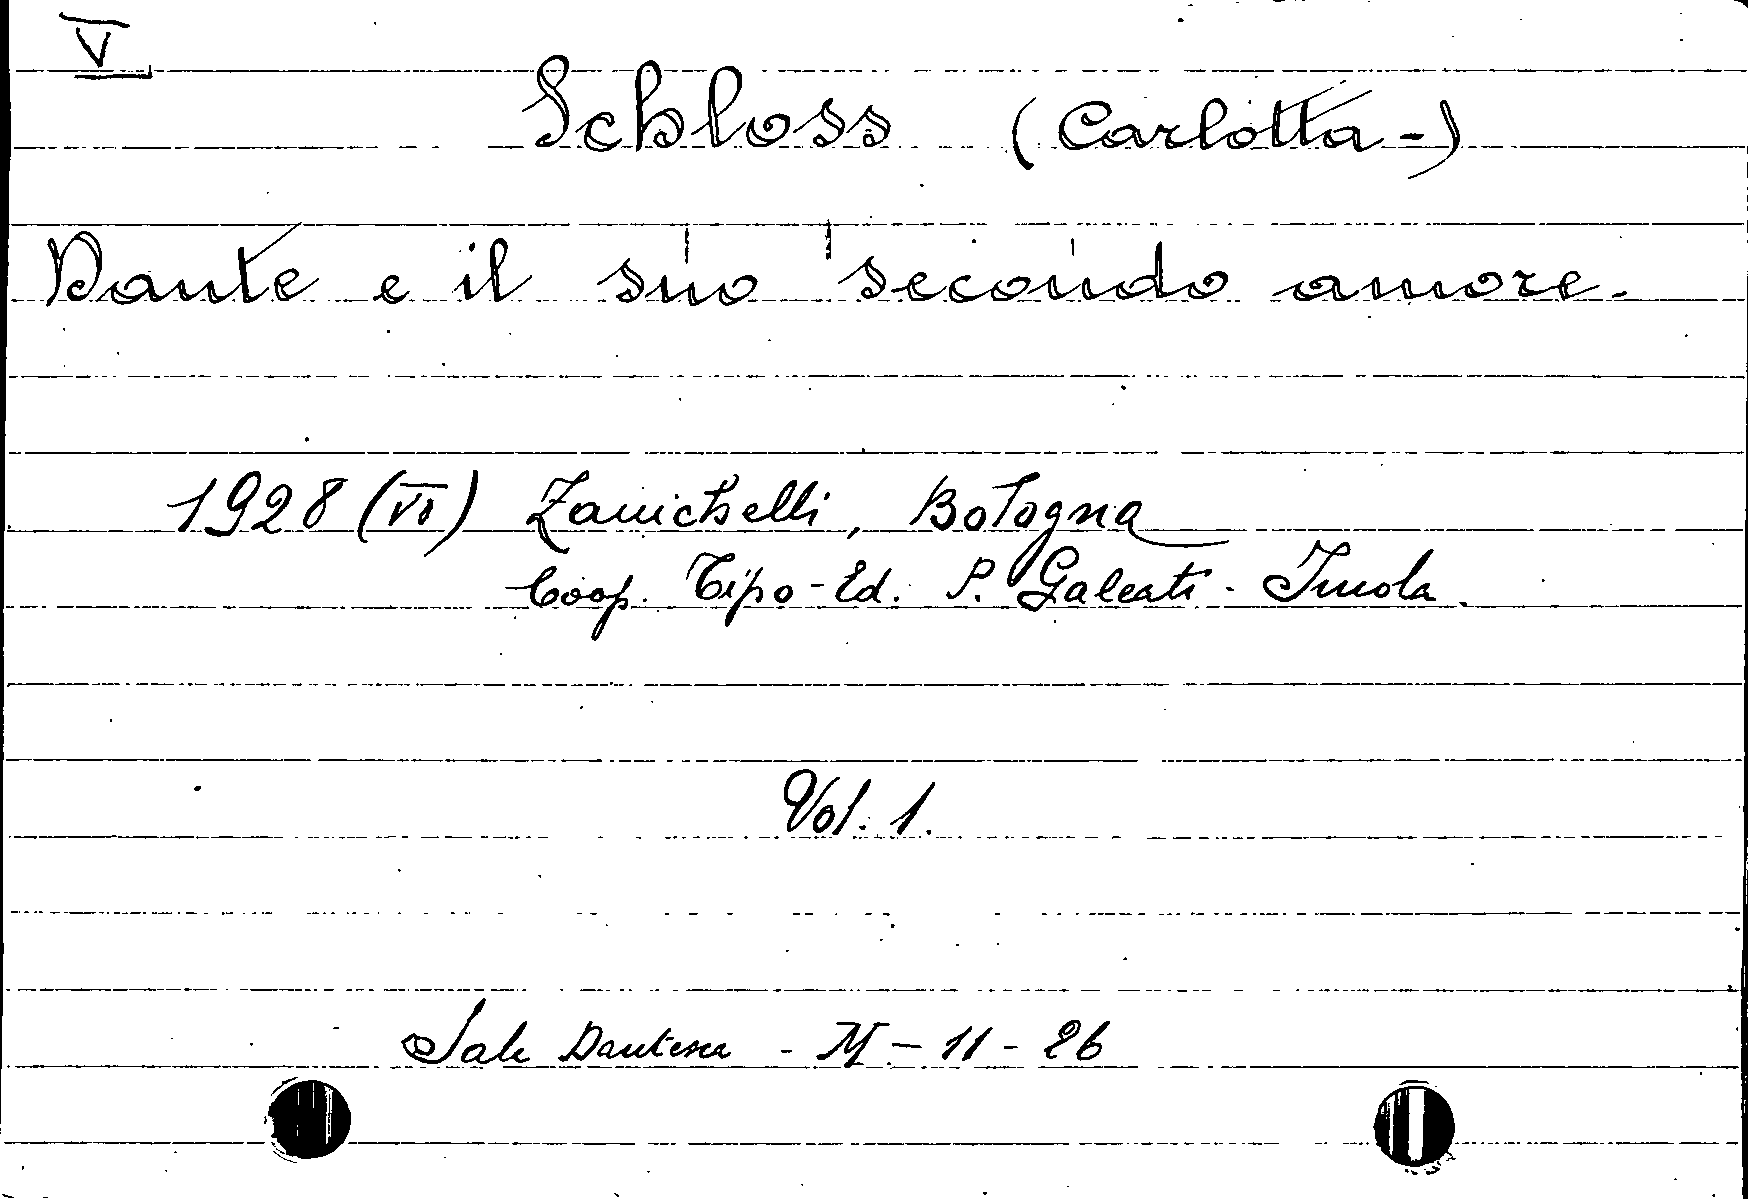 V
Schloss (Carlotta-)
Dante e il suo secondo amore.
1928 (VI) Zanichelli, Bologna
Coop. Tipo-Ed. P. Galeati - Imola.
Vol. 1.
Sala Dantesca - M - 11 - 26